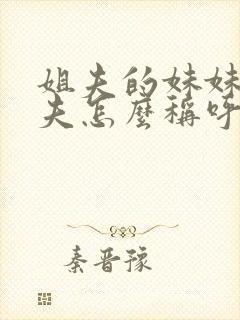 姐夫的妹妹
夫怎麽稱呼
秦晉豫